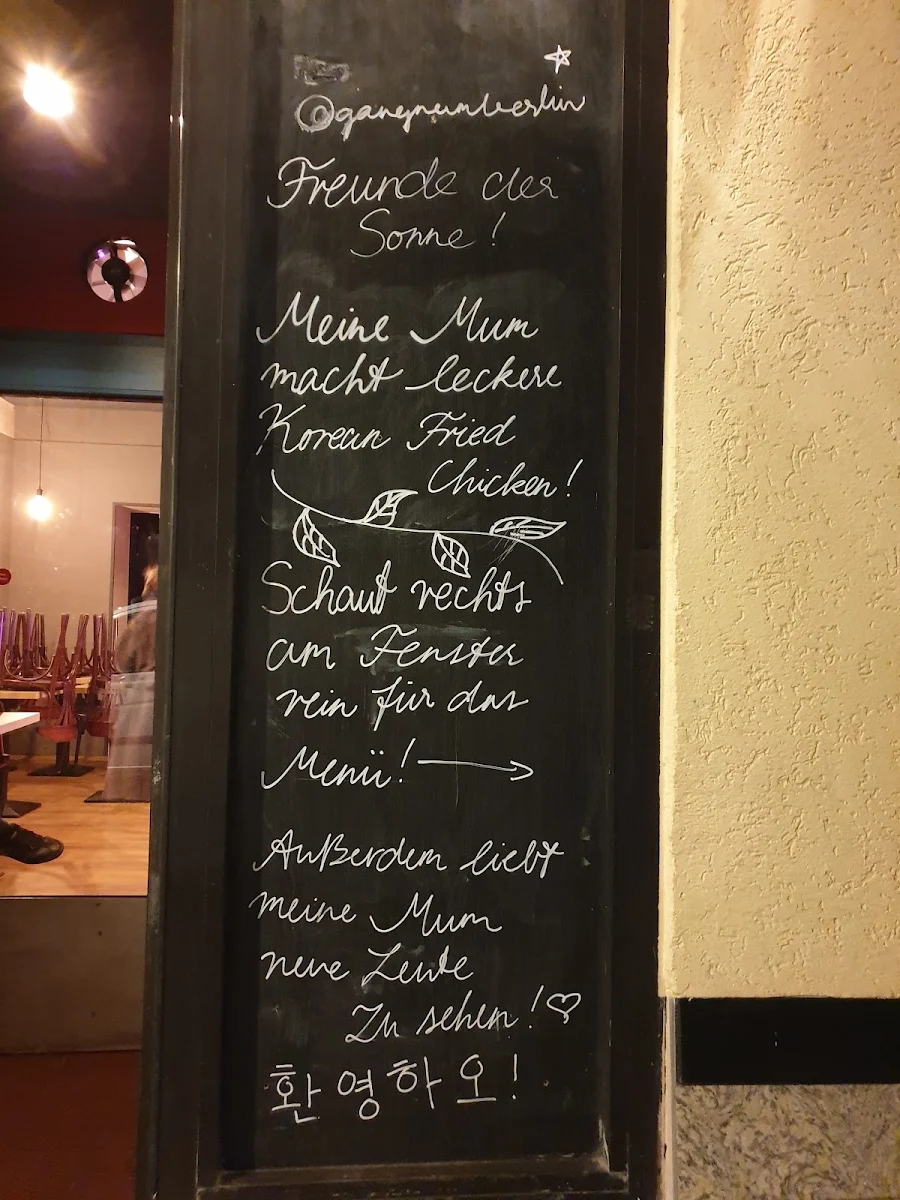 @gangnumberlin
Freunde der
Sonne!
Meine Mum
macht leckere
Korean Fried
Chicken!
Schaut rechts
am Fenster
rein für das
Menü!
Außerdem liebt
meine Mum
neue Leute
Zu sehen!
환영하오!